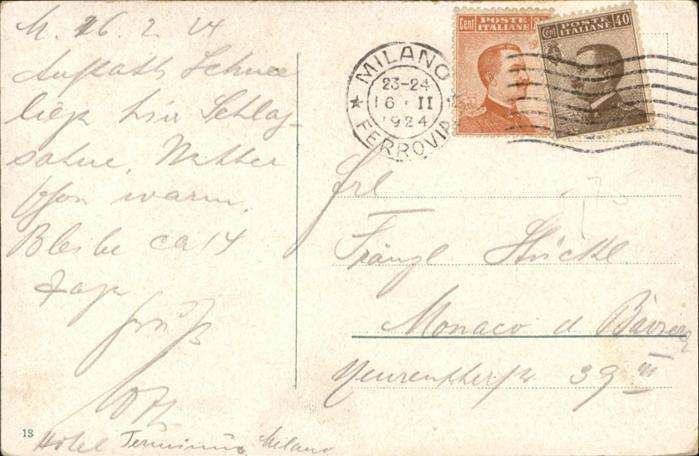 M. 16. 2. 24
Anstatt Schnee
liegt hier Schlag-
sahne. Wetter
schon warm.
Bleibe ca 14
Tage
Gruß
Hotel Terminus Milano
13
CENT POSTE ITALIANE
CENT POSTE ITALIANE 40
MILANO
23-24
16 · II
1924
FERROVIA
Frl
Fränzl Stückl
Monaco d Baviera
39 III